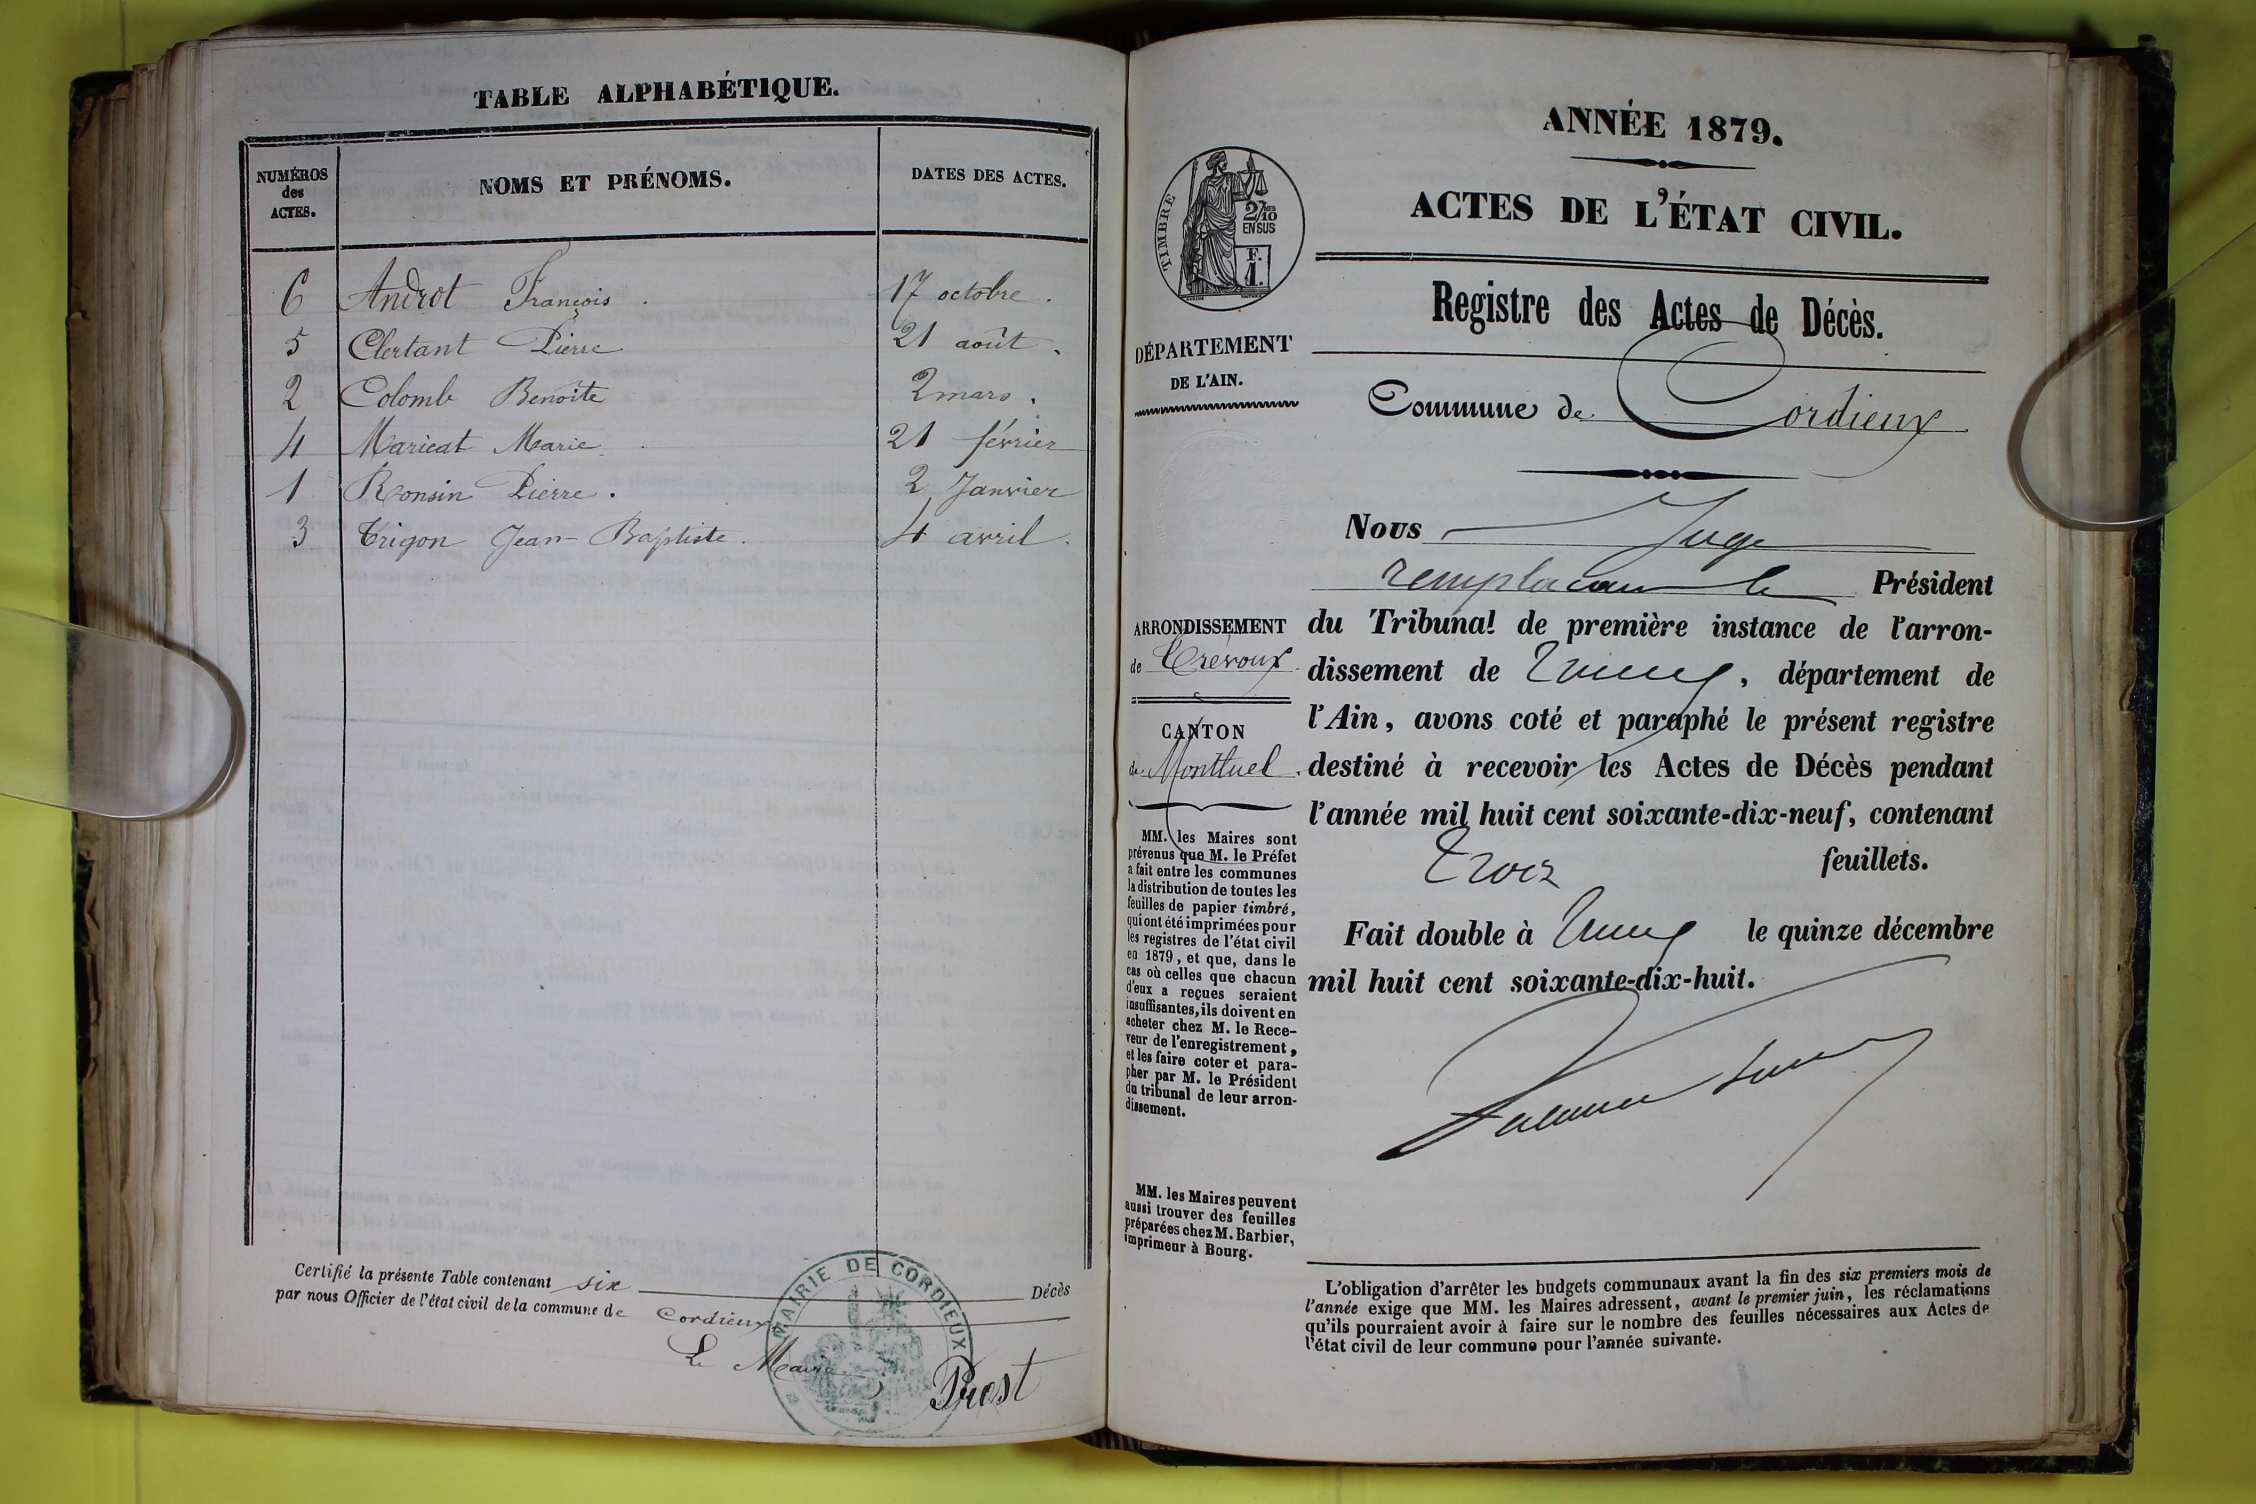 TABLE ALPHABÉTIQUE.
NUMÉROS
des
ACTES.
NOMS ET PRÉNOMS.
DATES DES ACTES.
6 Androt François. 17 octobre.
5 Clertant Pierre 21 août.
2 Colomb Benoîte 2 mars.
4 Maricat Marie. 21 février
1 Ronsin Pierre. 2 Janvier
3 Trigon Jean-Baptiste. 4 avril.
Certifié la présente Table contenant six Décès
par nous Officier de l'état civil de la commune de Cordieux
Le Maire
Prost
MAIRIE DE CORDIEUX
ANNÉE 1879.
ACTES DE L'ÉTAT CIVIL.
TIMBRE
2/10
EN SUS
F.
1.
Registre des Actes de Décès.
DÉPARTEMENT
DE L'AIN.
Commune de Cordieux
ARRONDISSEMENT
de Trévoux
CANTON
de Montluel.
MM. les Maires sont
prévenus que M. le Préfet
a fait entre les communes
la distribution de toutes les
feuilles de papier timbré,
qui ont été imprimées pour
les registres de l'état civil
en 1879, et que, dans le
cas où celles que chacun
d'eux a reçues seraient
insuffisantes, ils doivent en
acheter chez M. le Rece-
veur de l'enregistrement,
et les faire coter et para-
pher par M. le Président
du tribunal de leur arron-
dissement.
MM. les Maires peuvent
aussi trouver des feuilles
préparées chez M. Barbier,
imprimeur à Bourg.
Nous Juge
remplaçant le Président
du Tribunal de première instance de l'arron-
dissement de Trévoux, département de
l'Ain, avons coté et paraphé le présent registre
destiné à recevoir les Actes de Décès pendant
l'année mil huit cent soixante-dix-neuf, contenant
Trois feuillets.
Fait double à Trévoux le quinze décembre
mil huit cent soixante-dix-huit.
L'obligation d'arrêter les budgets communaux avant la fin des six premiers mois de
l'année exige que MM. les Maires adressent, avant le premier juin, les réclamations
qu'ils pourraient avoir à faire sur le nombre des feuilles nécessaires aux Actes de
l'état civil de leur commune pour l'année suivante.